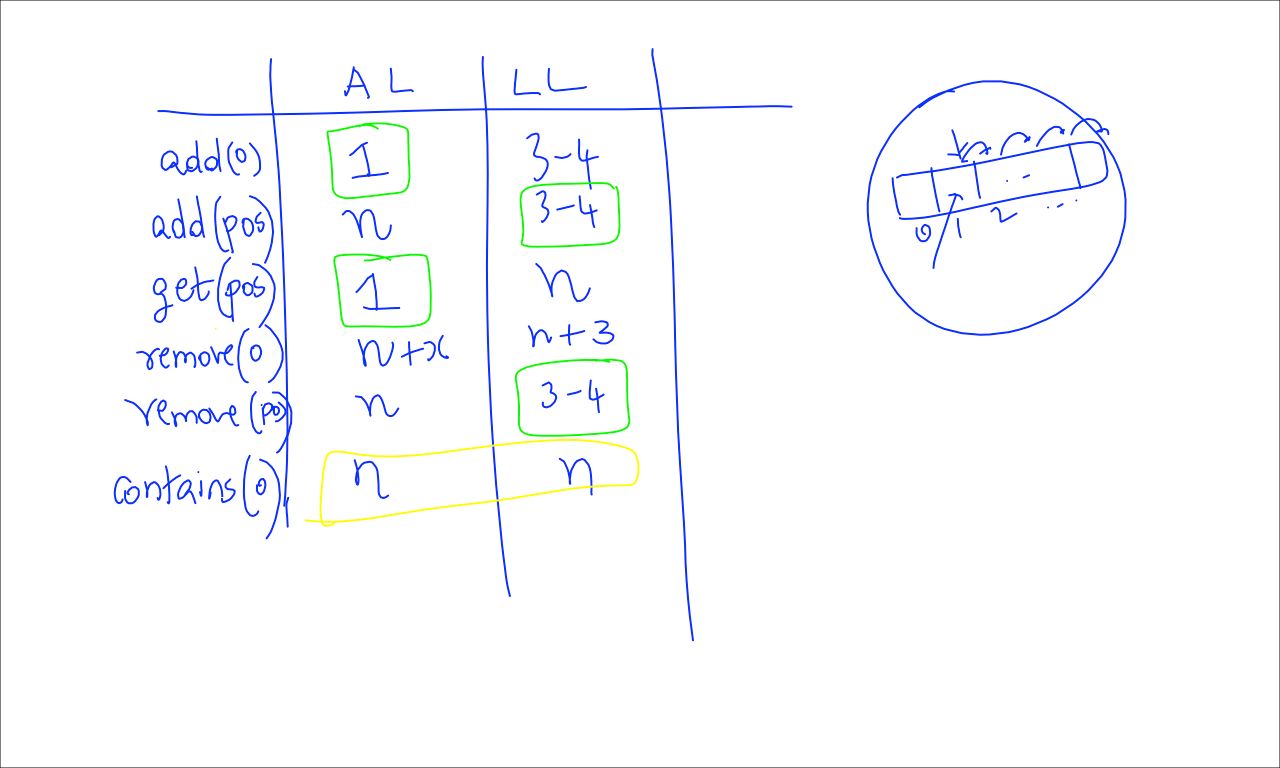 AL LL
add(0) 1 3-4
add(pos) n 3-4
get(pos) 1 n
remove(0) n+x n+3
remove(po) n 3-4
contains(0) n n
.. -
0 1 2 ...